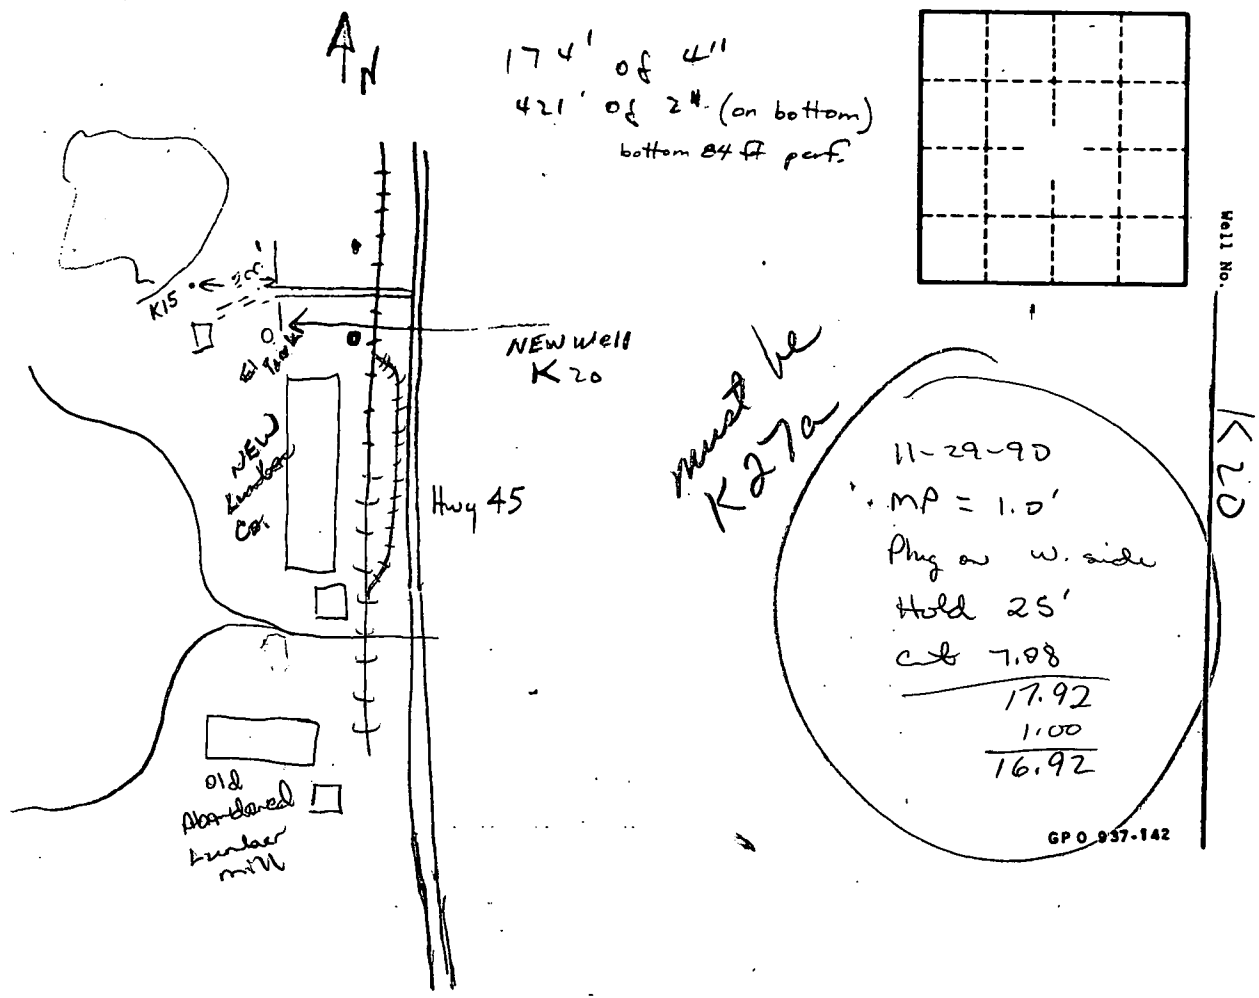 N
174' of 4"
421' of 2" (on bottom)
bottom 84 ft perf.
Well No.
K20
K15
El Tank
NEW Well
K 20
NEW
Lumber
Co.
Hwy 45
Old
Abandoned
Lumber
mill
must be
K27a
11-29-90
MP = 1.0'
Plug on w. side
Hold 25'
cut 7.08
17.92
1.00
16.92
GPO 937-142